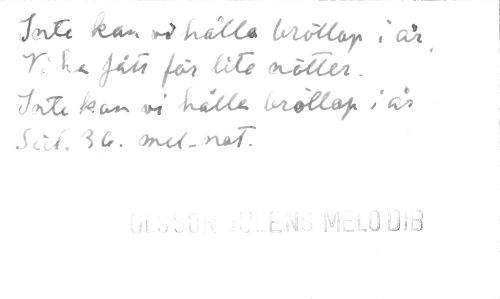 Inte kan vi hålla bröllop i år,
Vi ha fått för lite nötter.
Inte kan vi hålla bröllop i år
Sid. 36. mel-not.
OLSSON JULENS MELODIB